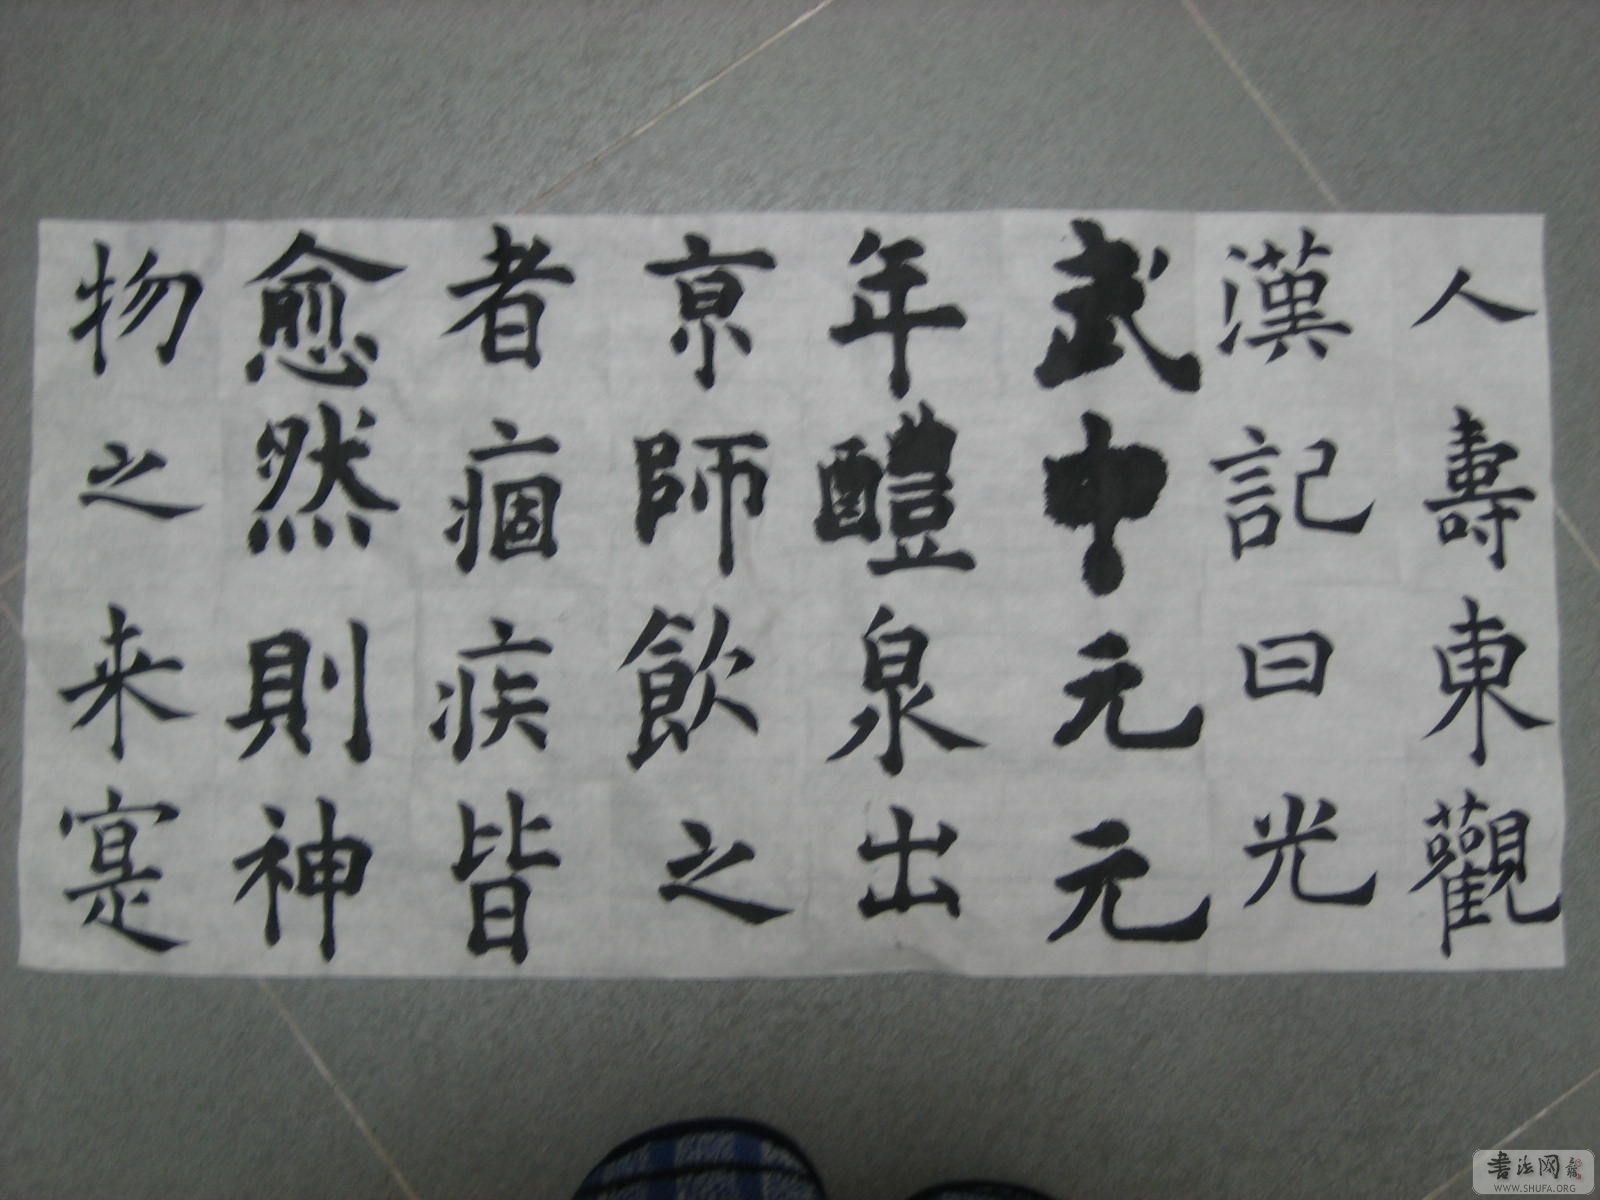 人壽東觀
漢記曰光
武中元元
年醴泉出
京師飲之
者痼疾皆
愈然則神
物之来寔
書法网
WWW.SHUFA.ORG